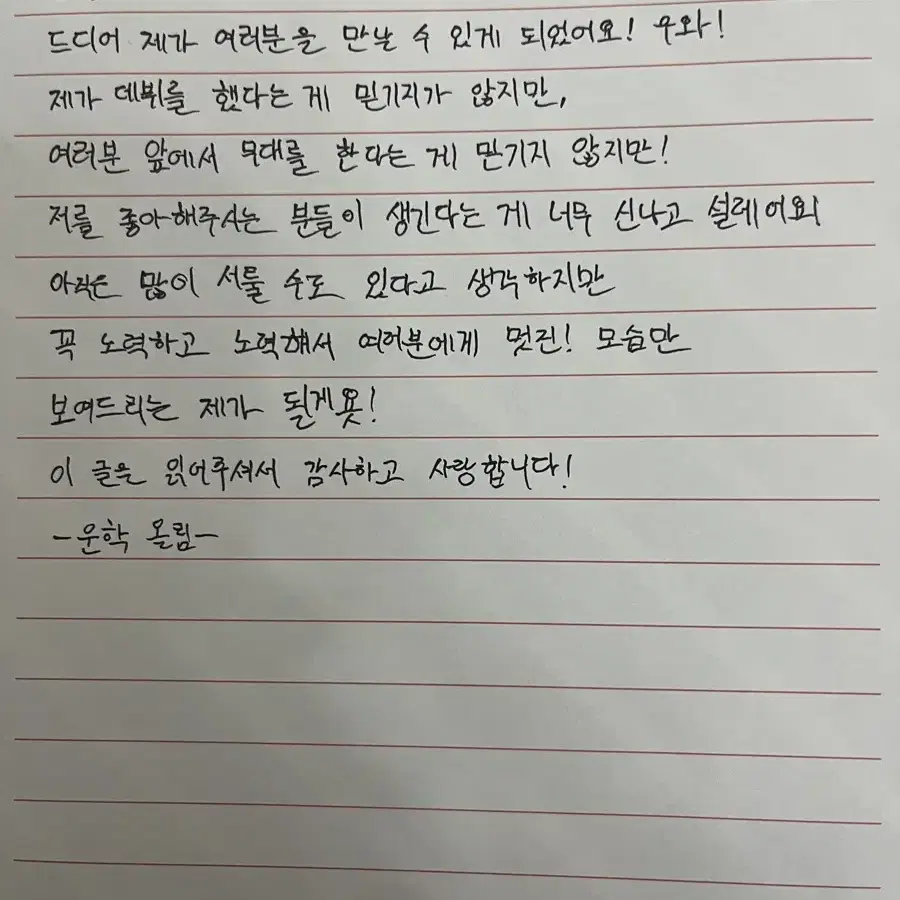 드디어 제가 여러분을 만날 수 있게 되었어요! 우와!
제가 데뷔를 했다는 게 믿기지가 않지만,
여러분 앞에서 무대를 한다는 게 믿기지 않지만!
저를 좋아해주시는 분들이 생긴다는 게 너무 신나고 설레어요
아직은 많이 서툴 수도 있다고 생각하지만
꼭 노력하고 노력해서 여러분에게 멋진! 모습만
보여드리는 제가 될게욧!
이 글을 읽어주셔서 감사하고 사랑합니다!
-운학 올림-